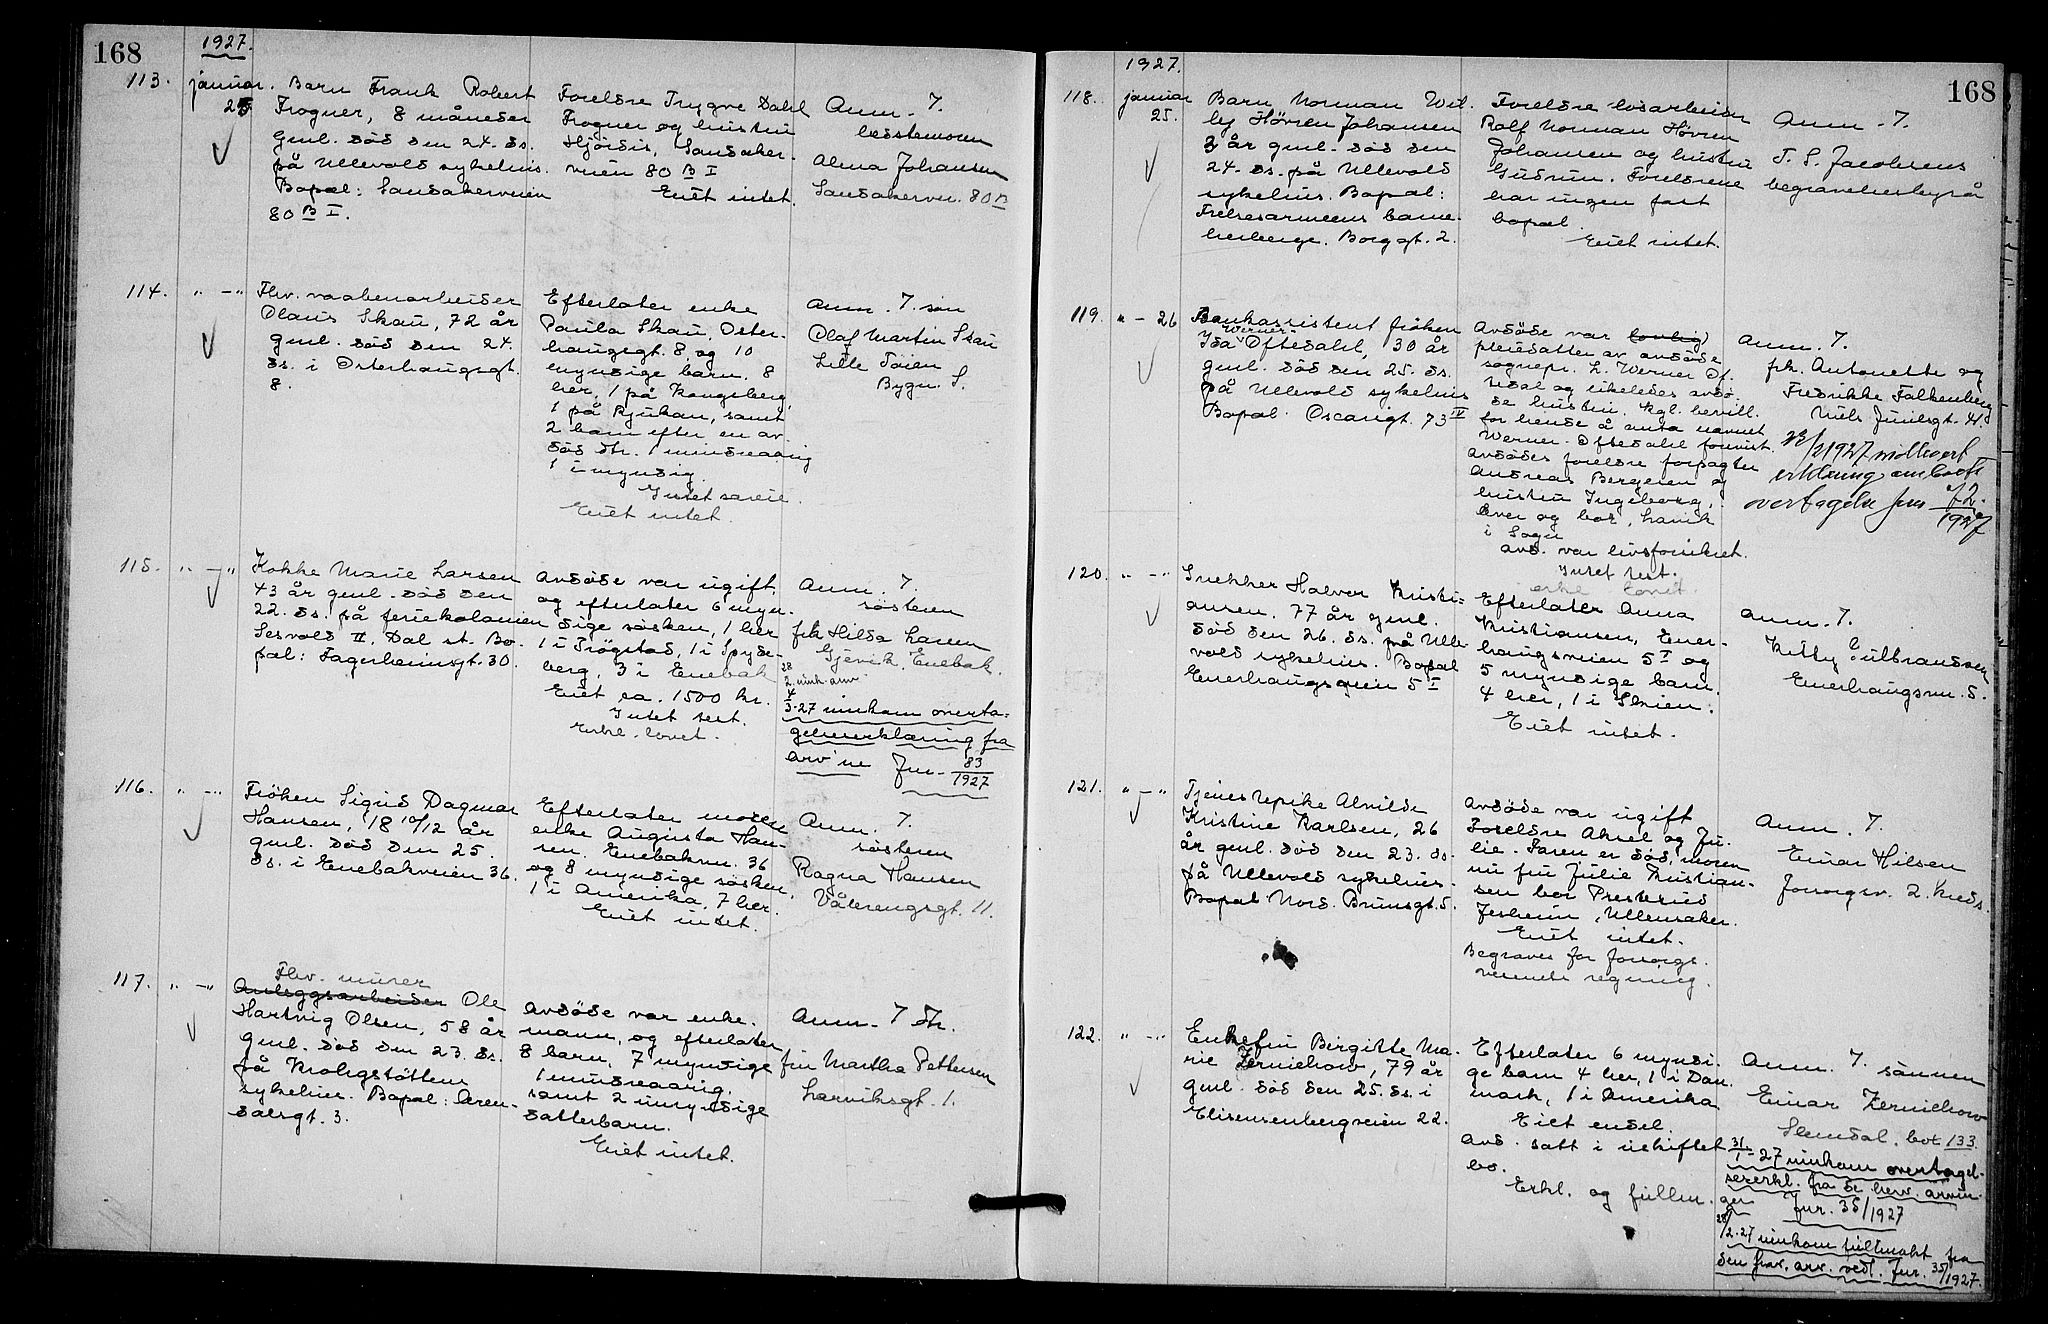 168
1927.
113. januar. 25
Barn Frank Robert
Frogner, 8 måneder
gml. død den 24. ds.
på Ullevold sykehus.
Bopæl: Sandakerveien
80 B I.
Foreldre Trygve Dahl
Frogner og hustru
Hjördis, Sandaker-
veien 80 B I
Eiet intet.
Anm. 7.
bestemoren
Alma Johansen
Sandakervn. 80 B
114. " — "
Fhv. vaabenarbeider
Olaus Skau, 72 år
gml. død den 24.
ds. i Osterhausgt.
8.
Efterlater enke
Paula Skau, Oster-
hausgt. 8, og 10
myndige barn. 8
her, 1 på Kongsberg,
1 på Rjukan, samt
2 barn efter en av-
död dtr. 1 mindreaarig
1 myndig.
Intet særeie.
Eiet intet.
Anm. 7. sön
Olaf Martin Skau
Lille Töien
Bygn. S.
115. " — "
Kokke Marie Larsen
43 år gml. död den
22. ds. på feriekolonien
Sesvold II, Dal st. Bo-
pæl: Fagerheimsgt. 30.
Avdöde var ugift
og efterlater 6 myn-
dige sösken, 1 her
1 i Trögstad, 1 i Spyde-
berg, 3 i Enebak
Eiet ca. 1500 kr.
Intet test.
Erkl. lovet.
Anm. 7.
søsteren
frk Hilda Larsen
Gjevik, Enebak.
3-27 innkom overta-
gelseerklæring fra
arv'ne Jnr. 83/1927
116. " — "
Fröken Sigrid Dagmar
Hansen, 18 10/12 år
gml. död den 25.
ds. i Enebakveien 36.
Efterlater moren
enke Augusta Han-
sen. Enebakvn. 36
og 8 myndige sösken,
1 i Amerika, 7 her.
Eiet intet.
Anm. 7.
søsteren
Ragna Hansen
Vålerengsgt. 11.
117. " — "
Fhv. murer
Anleggsarbeider Ole
Hartvig Olsen, 58 år
gml. död den 23. ds.
på Krohgstöttens
sykehus. Bopæl: Aren-
dalsgt. 3.
Avdöde var enke-
mann, og efterlater
8 barn, 7 myndige
1 mindreaarig,
samt 2 umyndige
datterbarn.
Eiet intet.
Anm. 7 dtr.
fru Martha Pettersen
Larviksgt. 1.
168
1927.
118. januar 25.
Barn Norman Wil-
ly Hövren Johansen
3 år gml. död den
24. ds. på Ullevold
sykehus. Bopæl:
Frelsesarmeens barne-
herberge. Borggt. 2.
Foreldre losarbeider
Rolf Norman Hövren
Johansen og hustru
Gudrun. Foreldrene
har ingen fast
bopæl.
Eiet intet.
Anm. 7.
T. S. Jacobsens
begravelsesbyrå
119. " — 26
Bankassistent fröken
Ida Werner-Oftedahl, 30 år
gml. död den 25. ds.
på Ullevold sykehus
Bopæl Oscarsgt. 73 IV
Avdöde var (lovlig)
pleiedatter av avdöde
sognepr. L. Werner Of-
tedal og likeledes avdö-
de hustru. Kgl. bevill.
for hende å anta navnet
Werner-Oftedahl forevist.
avdödes foreldre forpagter
Andreas Bergersen og
hustru Ingeborg,
lever og bor, Lavik
i Sogn
avd. var livsforsikret.
Intet test.
erkl. lovet.
Anm. 7.
frk. Antonette og
Fredrikke Falkenberg
Niels Juelsgt. 41.
23/2 1927 mottatt
erklæring om boets
overtagelse Jnr /1927
120. " — "
Snekker Halvor Kristi-
ansen. 77 år gml.
död den 26. ds. på Ulle-
vold sykehus. Bopæl
Enerhaugsveien 5 I
Efterlater Anna
Kristiansen, Ener-
haugsveien 5 I og
5 myndige barn.
4 her, 1 i Skien.
Eiet intet.
Anm. 7.
Kitty Gulbrandsen
Enerhaugsvn. 5.
121. " — "
Tjenestepike Alvilde
Kristine Karlsen, 26
år gml. död den 23. ds.
på Ullevold sykehus.
Bopæl Nord. Brunsgt. 5.
Avdöde var ugift
Foreldre Aksel og Ju-
lie. Faren er död, moren
nu fru Julie Kristian-
sen bor Presterud
Jesheim, Ullensaker.
Eiet intet.
Begraves for forsorgs-
vesenets regning.
Anm. 7.
Einar Nilsen
Forsorgsv. 2. kreds.
122. " — "
Enkefru Birgitte Ma-
rie Zernichow, 79 år
gml. död den 25. ds. i
Elisenbergveien 22.
Efterlater 6 myndi-
ge barn 4 her, 1 i Dan-
mark, 1 i Amerika
Eiet endel.
Avd. satt i uskiftet
bo.
Erkl. og fullm.
Anm. 7. sönnen
Einar Zernichow
Slemdal, box 133
31/1-27 innkom overtagel-
seserkl. fra de herv. arvin-
ger Jnr. 35/1927
28/2-27 innkom fullmakt fra
den frav. arv. vedl. Jnr. 35/1927.